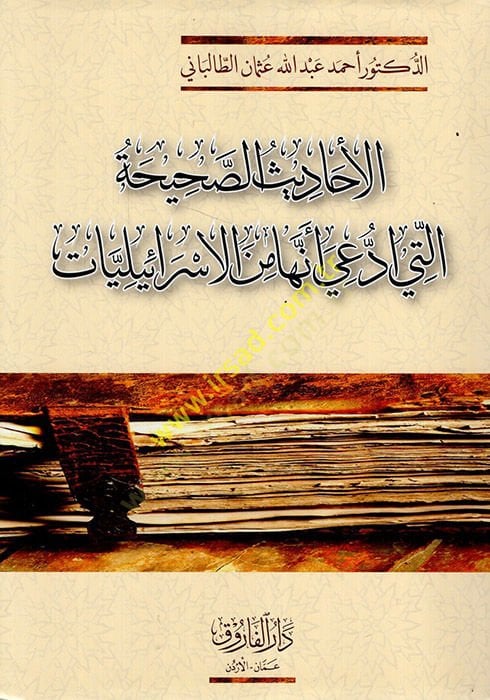 الدكتور أحمد عبد الله عثمان الطالباني
الأحاديث الصَّحِيحَةُ
التي ادُّعِيَ أنَّها مِنَ الإسْرَائِيلِيَّات
www.irsad.com.tr
دَارُ الفَارُوق
عَمَّان - الأردن